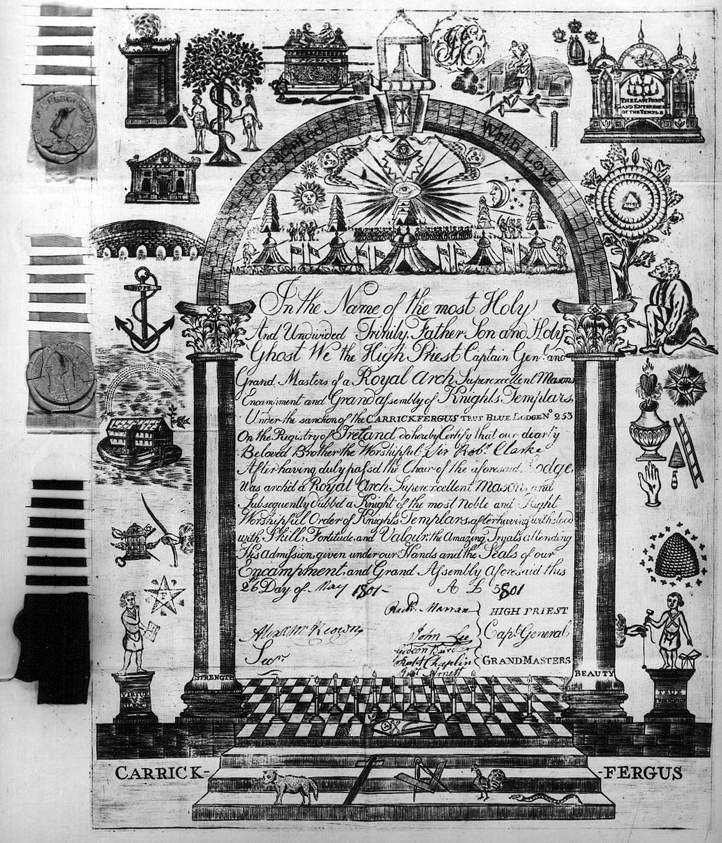 WITH LOVE
THE LAST POINT
AND ENTERING
OF THE TEMPLE
In the Name of the most Holy
And Undivided Trinity Father Son and Holy
Ghost We the High Priest Captain Genl. and
Grand Masters of a Royal Arch Superexcellent Masons
Encamiment and Grand assembly of Knights Templars,
Under the sanction of the CARRICKFERGUS TRUE BLUE LODGE No 253
On the Registry of Ireland do hereby Certify that our dearly
Beloved Brother the Worshipful Sir Robt. Clarke
After having duly pass'd the Chair of the aforesaid Lodge
Was arch'd a Royal Arch Superexcellent Mason and
Subsequently Dubb'd a Knight of the most Noble and Right
Worshipful Order of Knights Templars after having withstood
with Skill, Fortitude, and Valour, the Amazing Tryals attending
This Admission, given under our Hands and the Seals of our
Encampment, and Grand Assembly Aforesaid this
26 Day of May 1801 A L 5801
HIGH PRIEST
Alexr. McKeown
John Lee
Capt. General
Secry
GRAND MASTERS
STRENGTH
BEAUTY
CARRICK-
-FERGUS